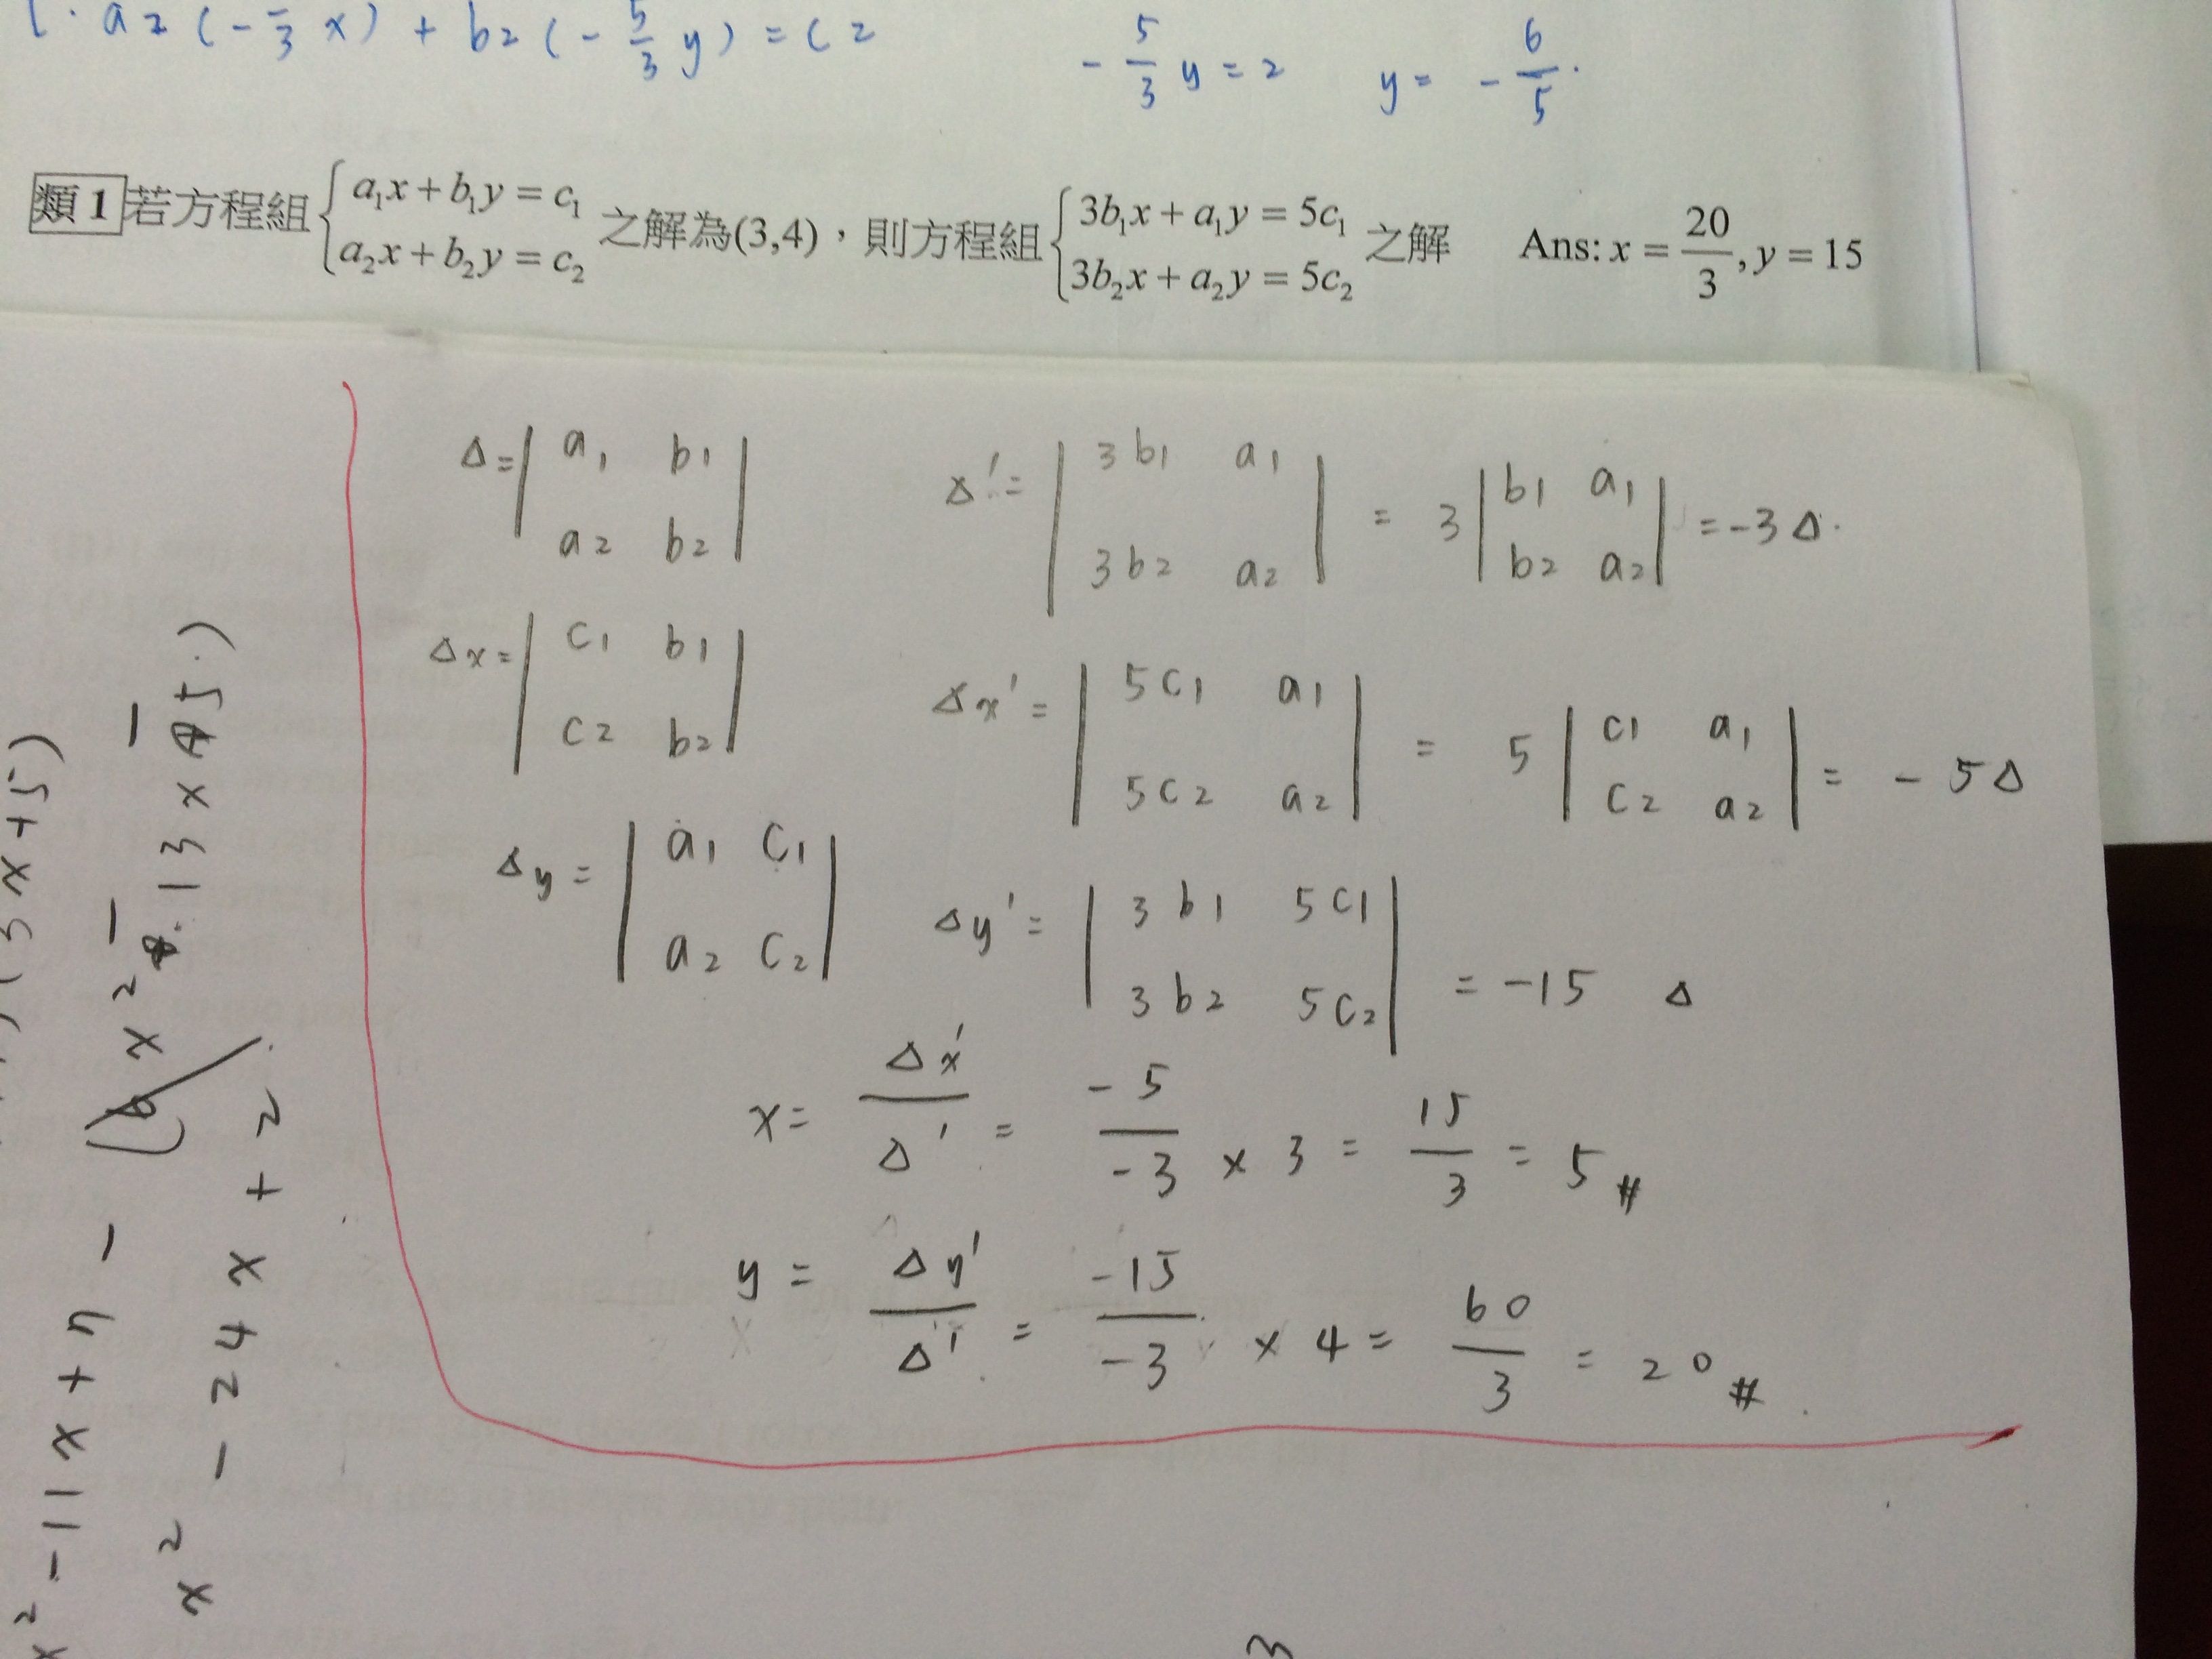 a2(- x) + b2(-5/3 y) = c2
-5/3 y = 2 y = -6/5.
類1 若方程組{a₁x+b₁y=c₁ a₂x+b₂y=c₂ 之解為(3,4),則方程組{3b₁x+a₁y=5c₁ 3b₂x+a₂y=5c₂ 之解 Ans: x=20/3, y=15
Δ=|a1 b1
a2 b2|
Δ'=|3b1 a1
3b2 a2| = 3|b1 a1
b2 a2| = -3Δ.
Δx=|c1 b1
c2 b2|
Δx'=|5c1 a1
5c2 a2| = 5|c1 a1
c2 a2| = -5Δ
Δy=|a1 c1
a2 c2|
Δy'=|3b1 5c1
3b2 5c2| = -15 Δ
x= Δx'/Δ' = -5/-3 x 3 = 15/3 = 5#
y = Δy'/Δ' = -15/-3 x 4 = 60/3 = 20#
(3x+5)
x²-11x+
x²-24x+2
3